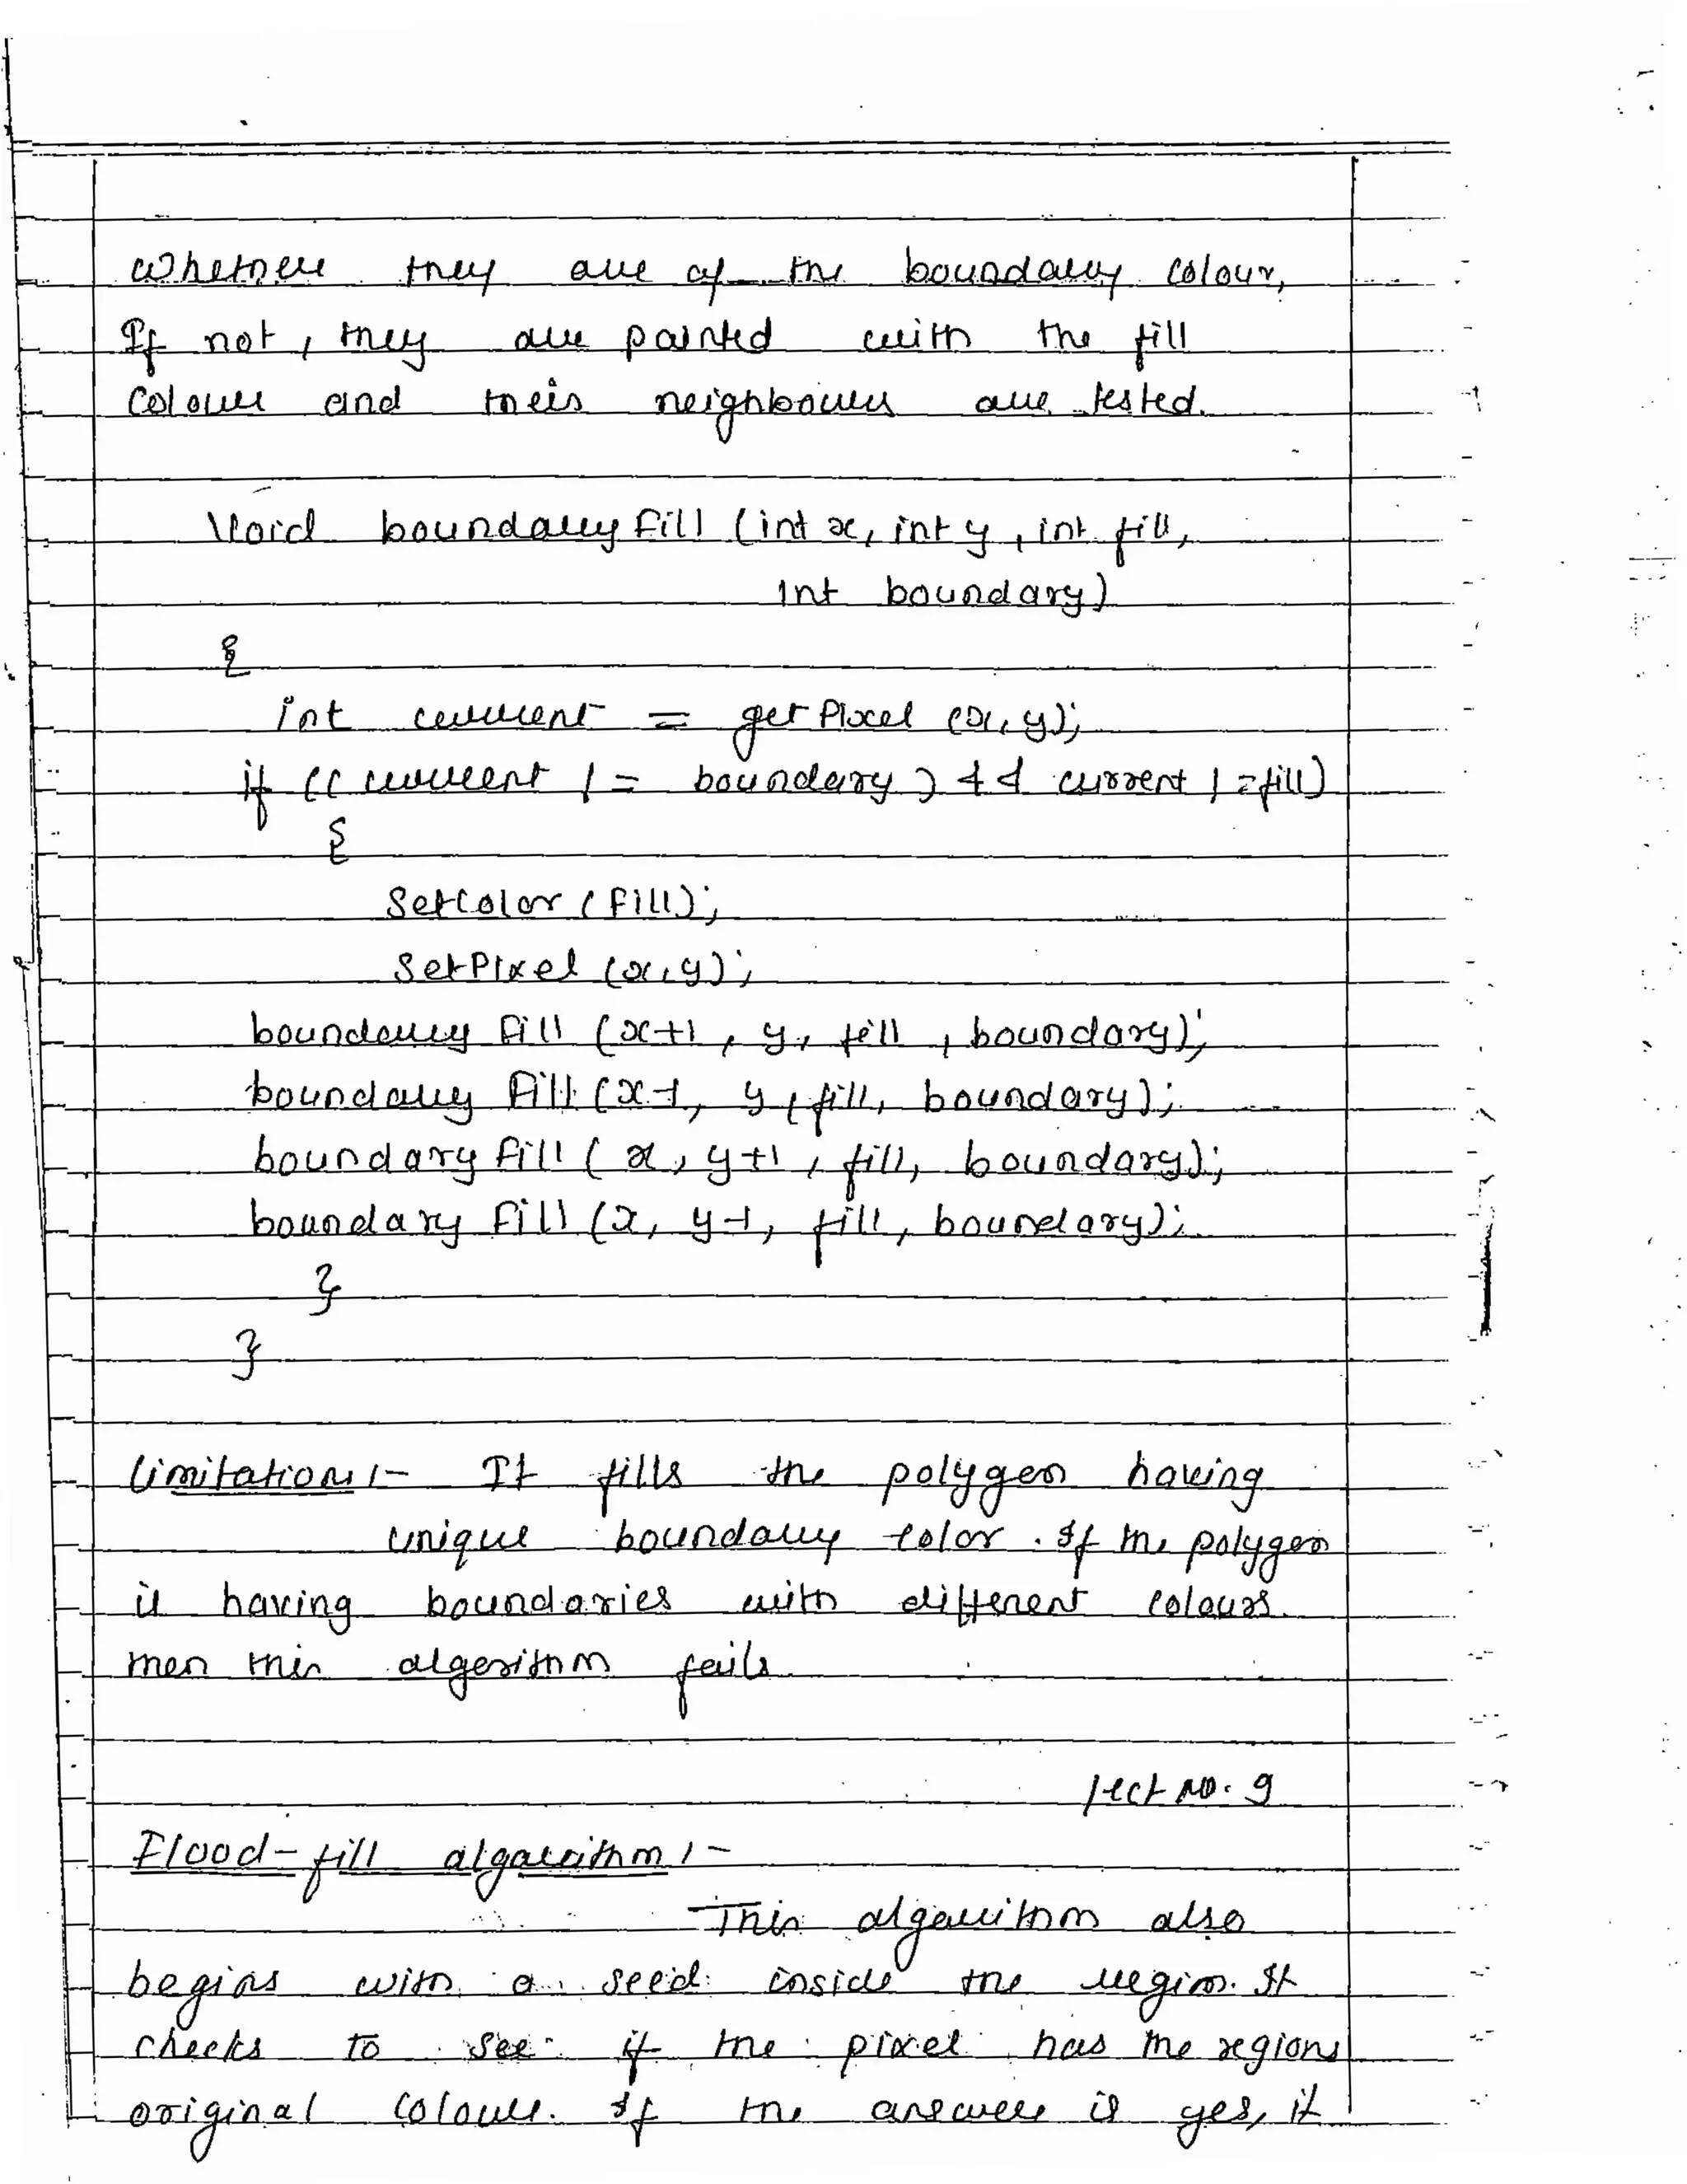 whether they are of the boundary colour,
If not, they are painted with the fill
colour and their neighbours are tested.
Void boundary fill (int x, int y, int fill,
int boundary)
{
int current = get Pixel (x, y);
if ((current != boundary) && current != fill)
{
SetColor (fill);
SetPixel (x, y);
boundary fill (x+1, y, fill, boundary);
boundary fill (x-1, y, fill, boundary);
boundary fill (x, y+1, fill, boundary);
boundary fill (x, y-1, fill, boundary);
}
}
Limitations :- It fills the polygon having
unique boundary color. If the polygon
is having boundaries with different colours
then this algorithm fails
lect no. 9
Flood-fill algorithm :-
This algorithm also
begins with a seed inside the region. It
checks to see if the pixel has the regions
original colour. If the answer is yes, it